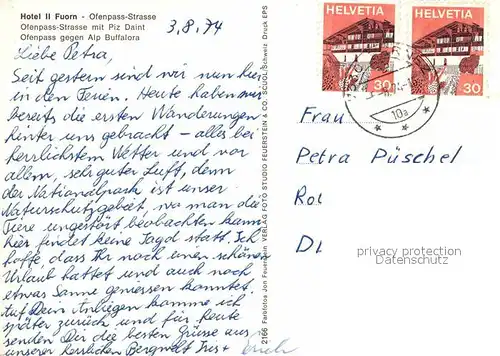 Hotel Il Fuorn - Ofenpass-Strasse
Ofenpass-Strasse mit Piz Daint
Ofenpass gegen Alp Buffalora
3.8.74
Liebe Petra,
Seit gestern sind wir nun hier
in den Ferien. Heute haben wir
bereits die ersten Wanderungen
hinter uns gebracht - alles bei
herrlichstem Wetter und vor
allem, sehr guter Luft, denn
der Nationalpark ist unser
Naturschutzgebiet, wo man die
Tiere ungestört beobachten kann
hier findet keine Jagd statt. Ich
hoffe dass Ihr noch einen schönen
Urlaub hattet und auch noch
etwas Sonne geniessen konntet.
Auf Dein Anliegen komme ich
später zurück und für heute
senden Dir die besten Grüsse aus
unserer herrlichen Bergwelt Iris + Erich
2166 Farbfotos Jon Feuerstein VERLAG FOTO STUDIO FEUERSTEIN & CO. SCUOL/Schweiz Druck EPS
HELVETIA
30
HELVETIA
30
10a
Frau
Petra Püschel
privacy protection
Datenschutz